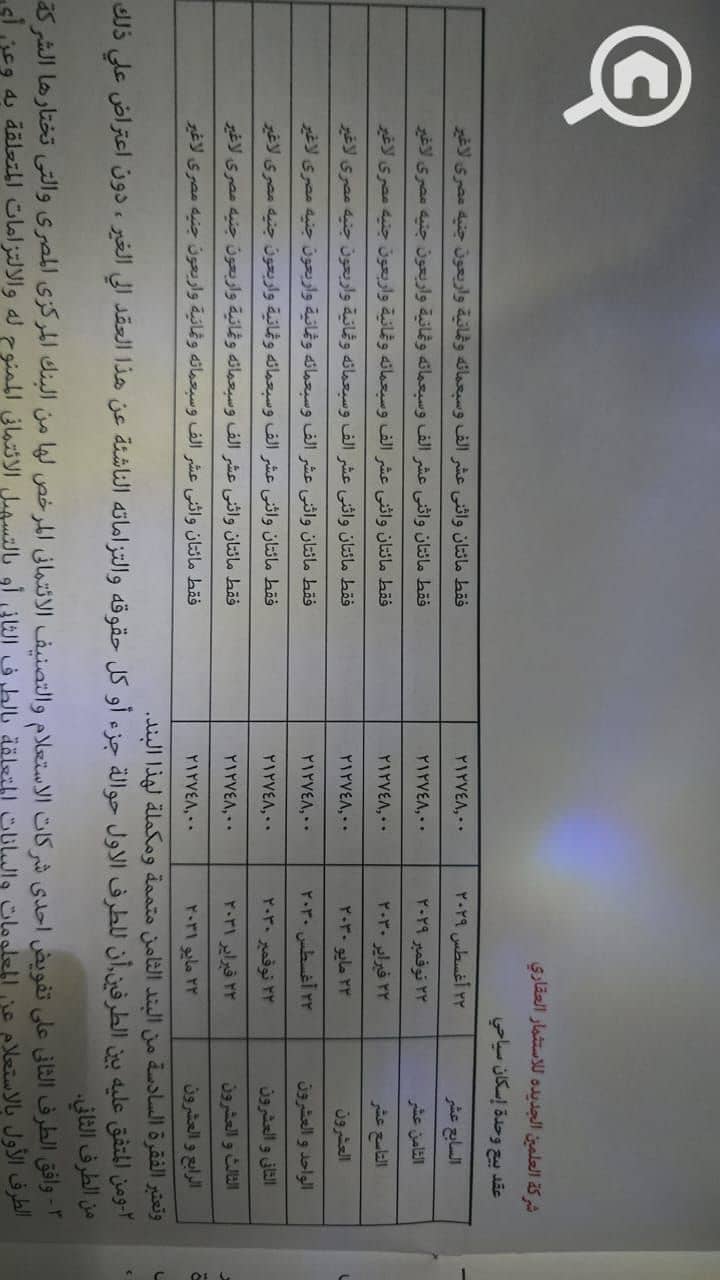 شركة العلمين الجديده للاستثمار العقاري
عقد بيع وحدة إسكان سياحي
السابع عشر ٢٢ أغسطس ٢٠٢٩ ٢١٢٧٤٨,٠٠ فقط مائتان واثنى عشر الف وسبعمائه وثمانية واربعون جنيه مصرى لاغير
الثامن عشر ٢٢ نوفمبر ٢٠٢٩ ٢١٢٧٤٨,٠٠ فقط مائتان واثنى عشر الف وسبعمائه وثمانية واربعون جنيه مصرى لاغير
التاسع عشر ٢٢ فبراير ٢٠٣٠ ٢١٢٧٤٨,٠٠ فقط مائتان واثنى عشر الف وسبعمائه وثمانية واربعون جنيه مصرى لاغير
العشرون ٢٢ مايو ٢٠٣٠ ٢١٢٧٤٨,٠٠ فقط مائتان واثنى عشر الف وسبعمائه وثمانية واربعون جنيه مصرى لاغير
الواحد و العشرون ٢٢ أغسطس ٢٠٣٠ ٢١٢٧٤٨,٠٠ فقط مائتان واثنى عشر الف وسبعمائه وثمانية واربعون جنيه مصرى لاغير
الثانى و العشرون ٢٢ نوفمبر ٢٠٣٠ ٢١٢٧٤٨,٠٠ فقط مائتان واثنى عشر الف وسبعمائه وثمانية واربعون جنيه مصرى لاغير
الثالث و العشرون ٢٢ فبراير ٢٠٣١ ٢١٢٧٤٨,٠٠ فقط مائتان واثنى عشر الف وسبعمائه وثمانية واربعون جنيه مصرى لاغير
الرابع و العشرون ٢٢ مايو ٢٠٣١ ٢١٢٧٤٨,٠٠ فقط مائتان واثنى عشر الف وسبعمائه وثمانية واربعون جنيه مصرى لاغير
وتعتبر الفقرة السادسة من البند الثامن متممة ومكملة لهذا البند.
٢-ومن المتفق عليه بين الطرفين,أن للطرف الاول حوالة جزء أو كل حقوقه والتزاماته الناشئة عن هذا العقد الي الغير ، دون اعتراض علي ذلك
من الطرف الثاني.
٣- وافق الطرف الثانى على تفويض احدى شركات الاستعلام والتصنيف الائتمانى المرخص لها من البنك المركزى المصرى والتى تختارها الشركة
الطرف الأول بالاستعلام عن المعلومات والبيانات المتعلقة بالطرف الثانى أو بالتسهيل الائتمانى الممنوح له والالتزامات المتعلقة به وعن أى